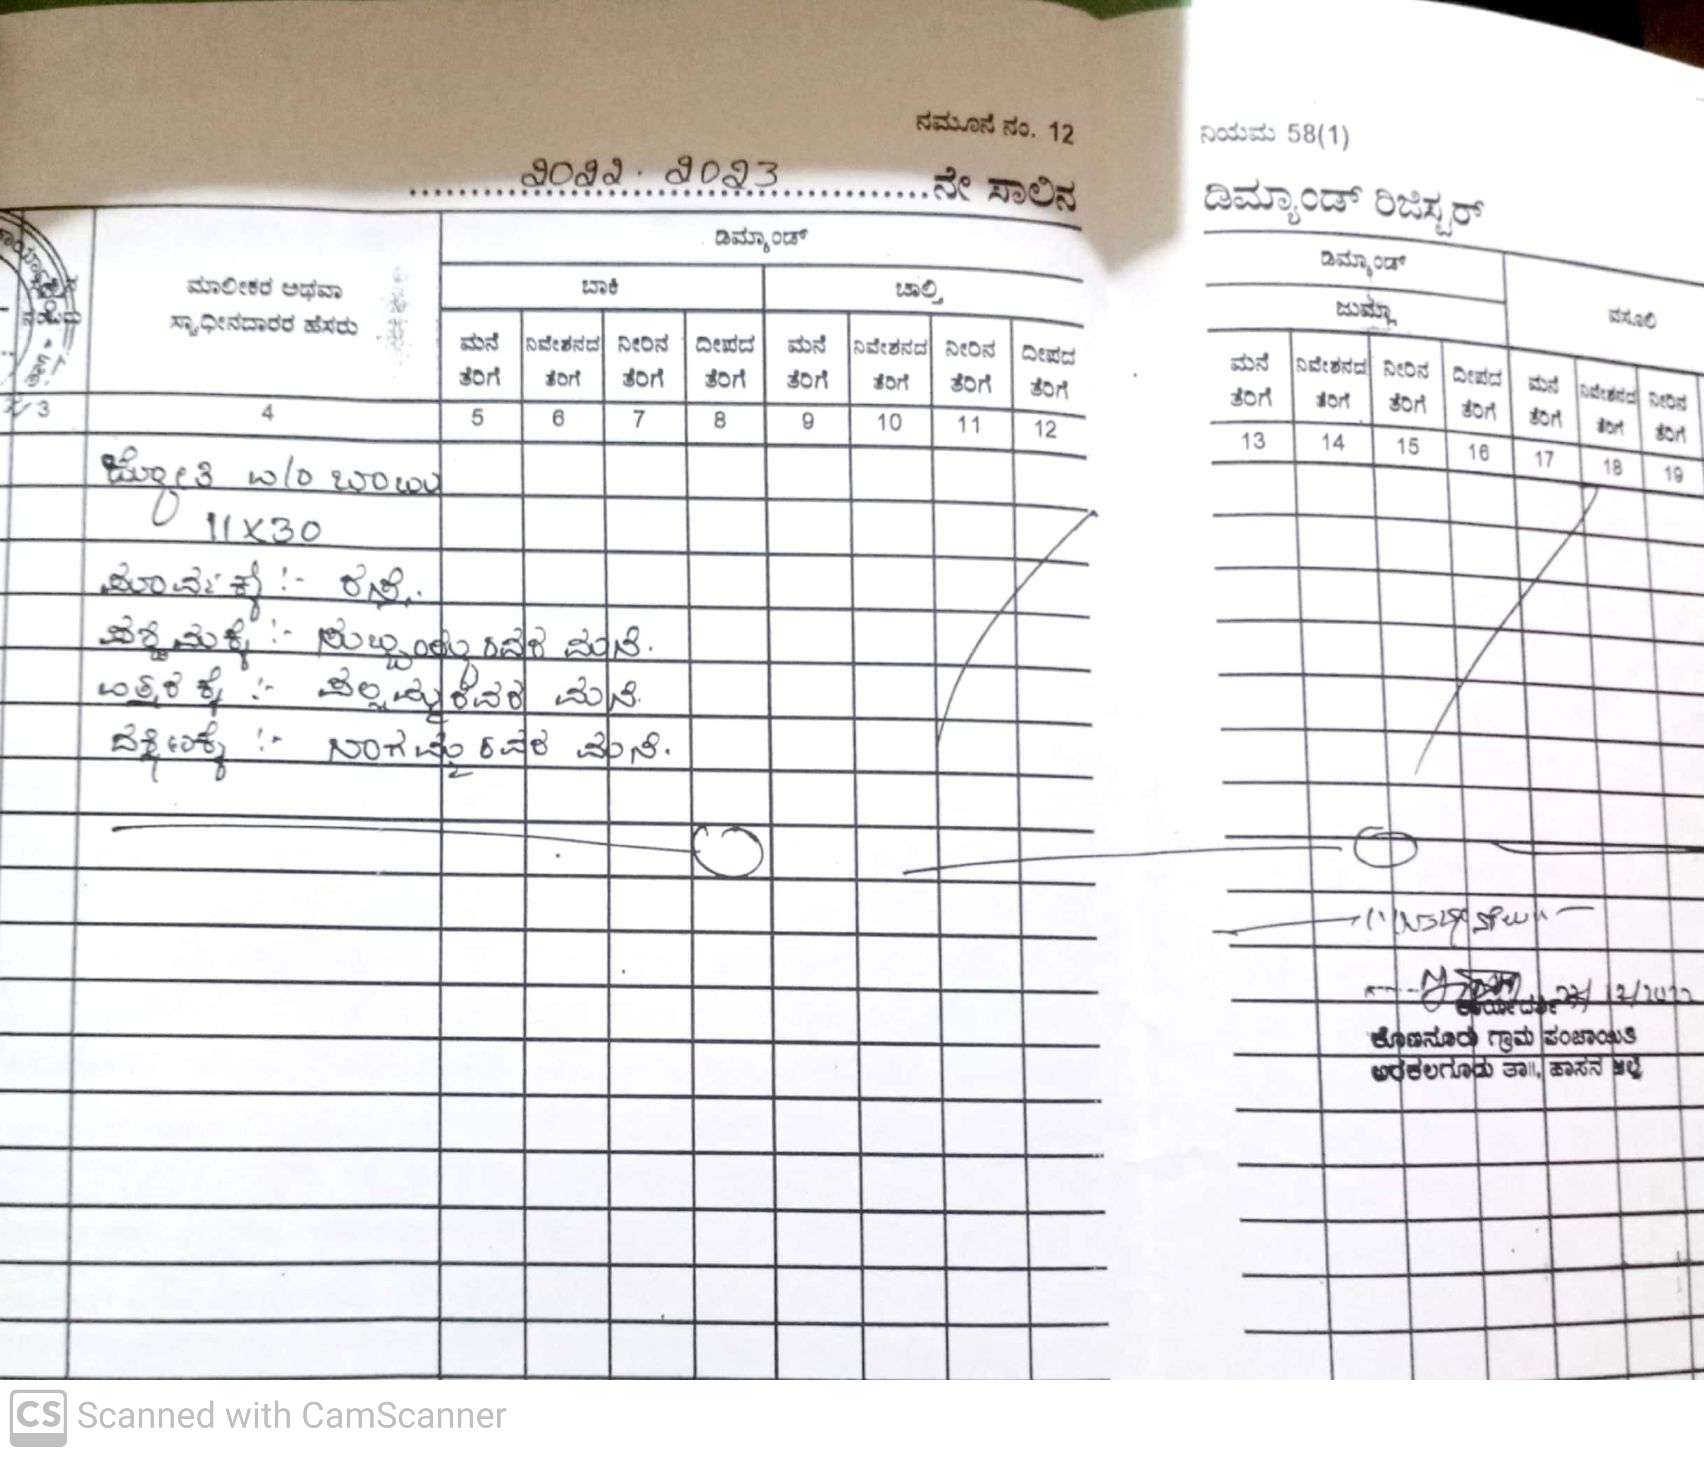 ನಮೂನೆ ನಂ. 12
ನಿಯಮ 58(1)
೨೦೨೨. ೨೦೨೩ ನೇ ಸಾಲಿನ
ಡಿಮ್ಯಾಂಡ್ ರಿಜಿಸ್ಟರ್
ಡಿಮ್ಯಾಂಡ್
ಡಿಮ್ಯಾಂಡ್
ಮಾಲೀಕರ ಅಥವಾ
ಸ್ವಾಧೀನದಾರರ ಹೆಸರು
ಬಾಕಿ ಚಾಲ್ತಿ ಜುಮ್ಲಾ ವಸೂಲಿ
ಮನೆ ನಿವೇಶನದ ನೀರಿನ ದೀಪದ ಮನೆ ನಿವೇಶನದ ನೀರಿನ ದೀಪದ ಮನೆ ನಿವೇಶನದ ನೀರಿನ ದೀಪದ ಮನೆ ನಿವೇಶನದ ನೀರಿನ
ತೆರಿಗೆ ತೆರಿಗೆ ತೆರಿಗೆ ತೆರಿಗೆ ತೆರಿಗೆ ತೆರಿಗೆ ತೆರಿಗೆ ತೆರಿಗೆ ತೆರಿಗೆ ತೆರಿಗೆ ತೆರಿಗೆ ತೆರಿಗೆ ತೆರಿಗೆ ತೆರಿಗೆ ತೆರಿಗೆ
3 4 5 6 7 8 9 10 11 12 13 14 15 16 17 18 19
ಜ್ಯೋತಿ
11X30
ಪೂರ್ವಕ್ಕೆ :- ರಸ್ತೆ.
ಪಶ್ಚಿಮಕ್ಕೆ :- ಮನೆ.
ಉತ್ತರಕ್ಕೆ :- ಮನೆ.
ದಕ್ಷಿಣಕ್ಕೆ :- ನಾಗಮ್ಮರವರ ಮನೆ.
ಕಾರ್ಯದರ್ಶಿ
ಕೊಣನೂರು ಗ್ರಾಮ ಪಂಚಾಯಿತಿ
ಅರಕಲಗೂಡು ತಾ||, ಹಾಸನ ಜಿಲ್ಲೆ
CS Scanned with CamScanner